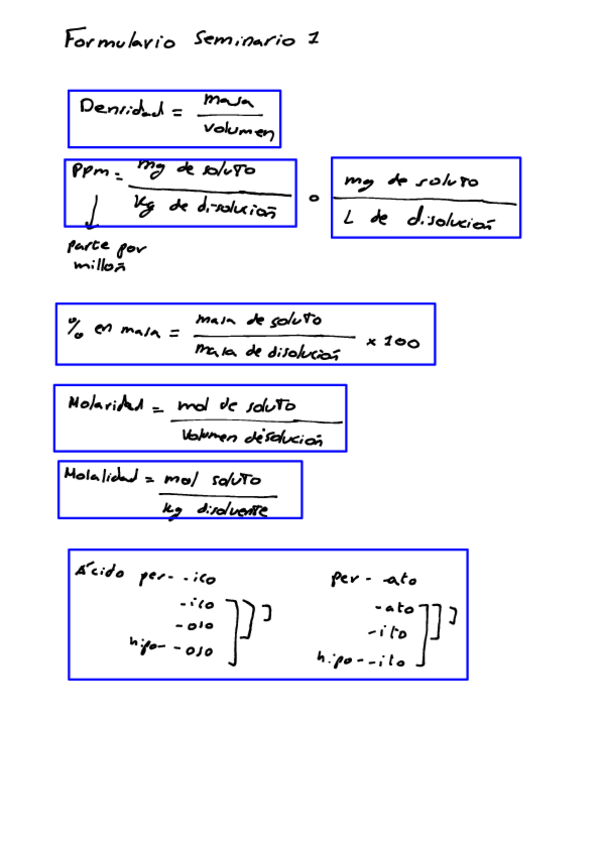 Formulario Seminario 1
Densidad = masa / volumen
Ppm = mg de soluto / Kg de disolución o mg de soluto / L de disolución
parte por
millón
% en masa = masa de soluto / masa de disolución x 100
Molaridad = mol de soluto / Volumen disolución
Molalidad = mol soluto / kg disolvente
Ácido per- -ico per- -ato
-ico -ato
-oso -ito
hipo- -oso hipo- -ito